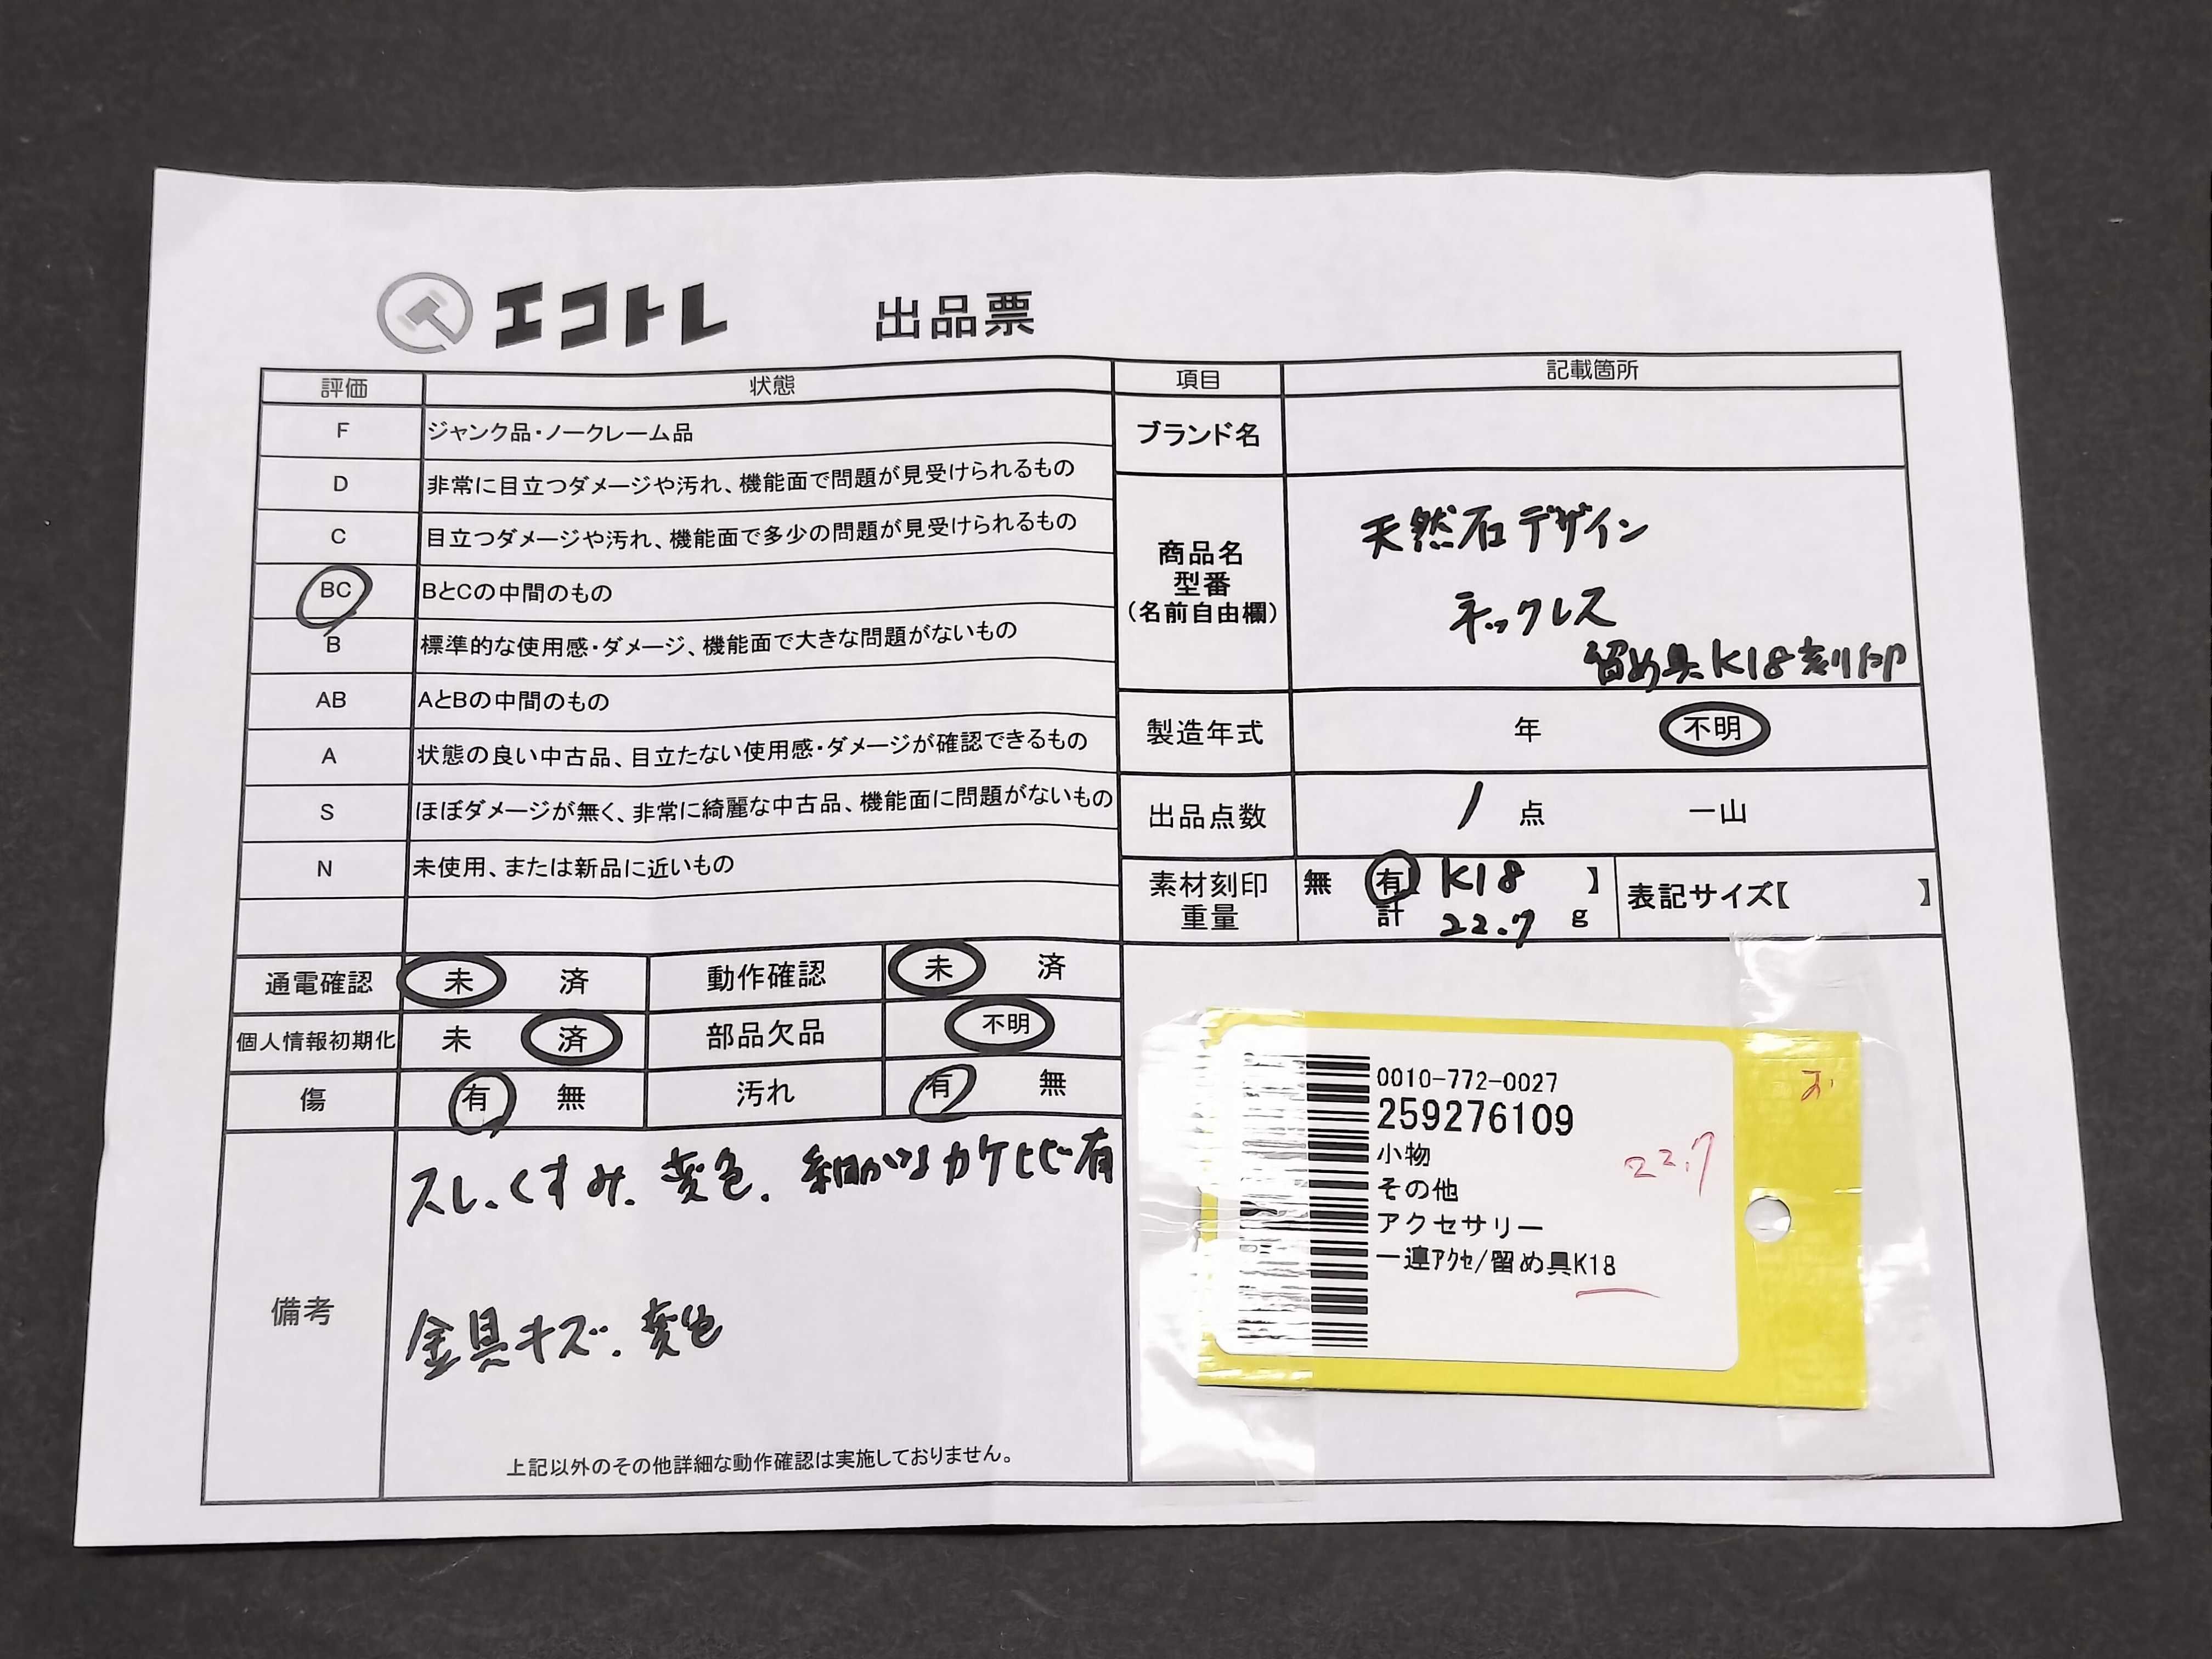 エコトレ 出品票
評価 状態
F ジャンク品・ノークレーム品
D 非常に目立つダメージや汚れ、機能面で問題が見受けられるもの
C 目立つダメージや汚れ、機能面で多少の問題が見受けられるもの
BC BとCの中間のもの
B 標準的な使用感・ダメージ、機能面で大きな問題がないもの
AB AとBの中間のもの
A 状態の良い中古品、目立たない使用感・ダメージが確認できるもの
S ほぼダメージが無く、非常に綺麗な中古品、機能面に問題がないもの
N 未使用、または新品に近いもの
通電確認 未 済 動作確認 未 済
個人情報初期化 未 済 部品欠品 不明
傷 有 無 汚れ 有 無
備考
スレ、くすみ、変色、細かいカケヒビ有
金具キズ、変色
上記以外のその他詳細な動作確認は実施しておりません。
項目 記載箇所
ブランド名
商品名
型番
(名前自由欄)
天然石デザイン
ネックレス
留め具K18刻印
製造年式 年 不明
出品点数 1 点 一山
素材刻印 無 有 K18 】
重量 計 22.7 g
表記サイズ【 】
0010-772-0027
259276109
小物
その他
アクセサリー
一連アクセ/留め具K18
22.7